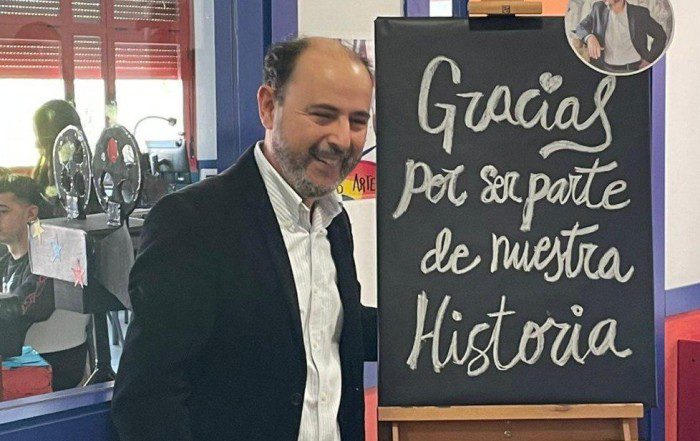 Gracias
por ser parte
de nuestra
Historia
ARTE